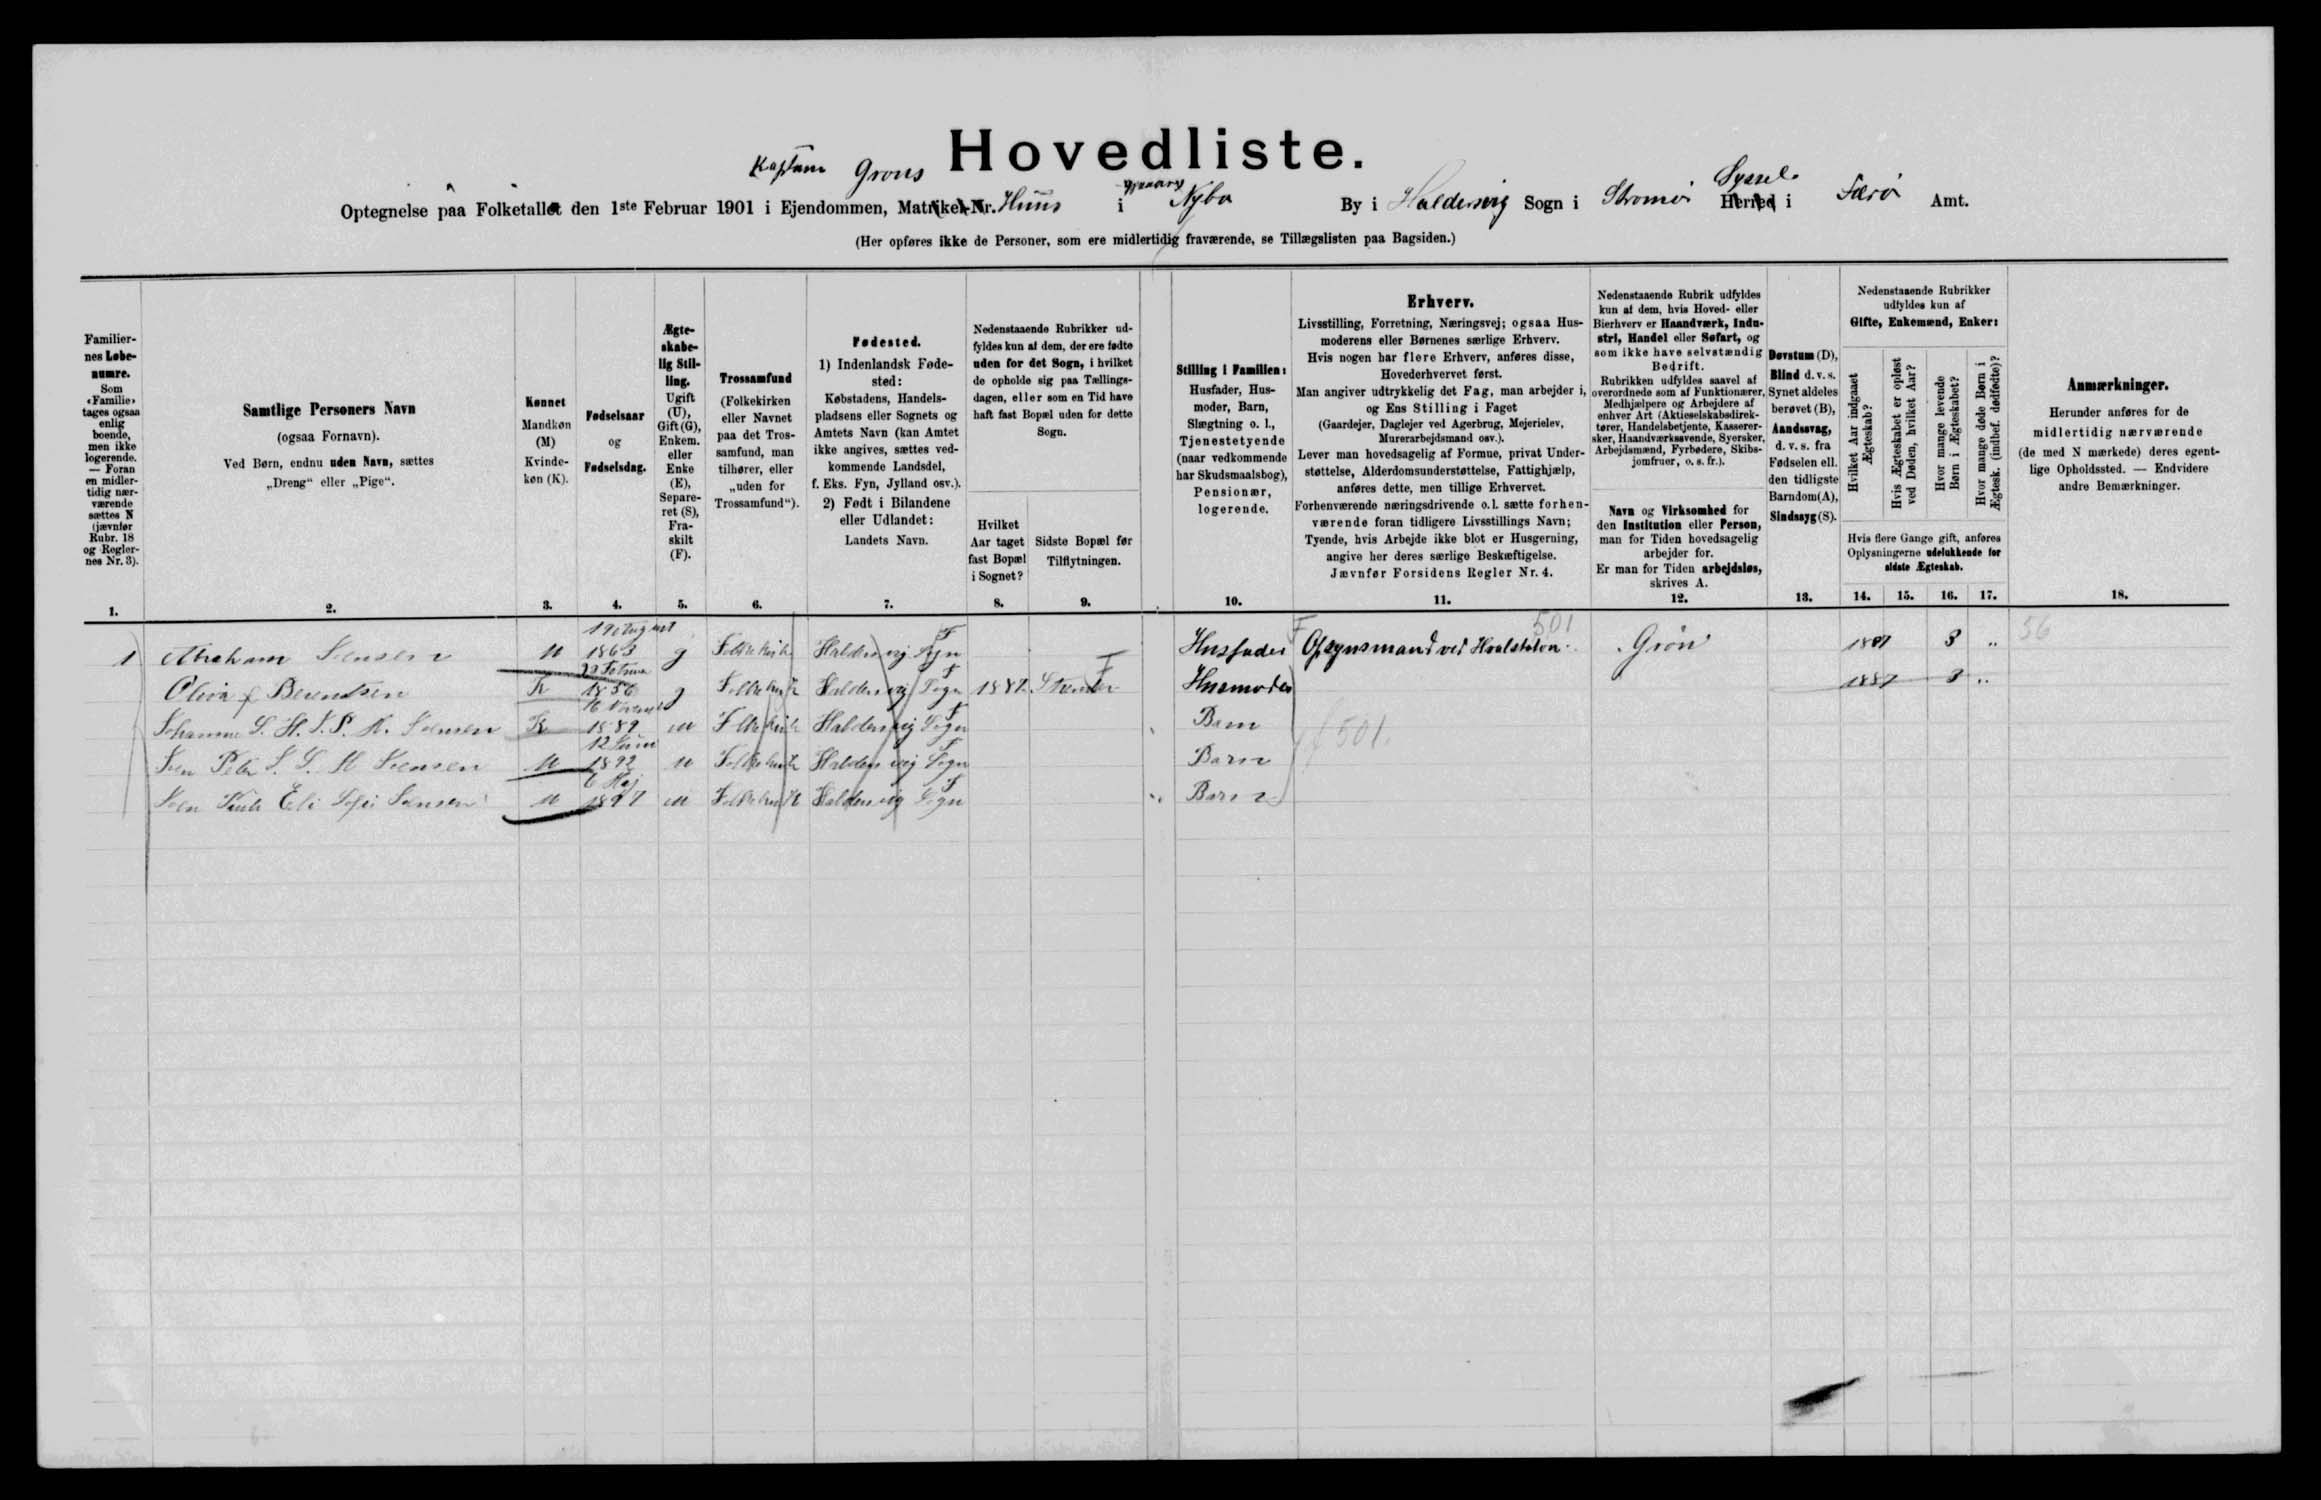 Hovedliste.
Kaptain Grøns
Optegnelse paa Folketallet den 1ste Februar 1901 i Ejendommen, Matrikel-Nr. Huus i Nybo By i Haldersvig Sogn i Strømø Syssel Herred i Færø Amt.
(Her opføres ikke de Personer, som ere midlertidig fraværende, se Tillægslisten paa Bagsiden.)
Familier-
nes Løbe-
numre.
Som
«Familie»
tages ogsaa
enlig
boende,
men ikke
logerende.
— Foran
en midler-
tidig nær-
værende
sættes N
(jævnfør
Rubr. 18
og Regler-
nes Nr. 3).
1.
Samtlige Personers Navn
(ogsaa Fornavn).
Ved Børn, endnu uden Navn, sættes
„Dreng“ eller „Pige“.
2.
Kønnet
Mandkøn
(M)
Kvinde-
køn (K).
3.
Fødselsaar
og
Fødselsdag.
4.
Ægte-
skabe-
lig Stil-
ling.
Ugift
(U),
Gift (G),
Enkem.
eller
Enke
(E),
Separe-
ret (S),
Fra-
skilt
(F).
5.
Trossamfund
(Folkekirken
eller Navnet
paa det Tros-
samfund, man
tilhører, eller
„uden for
Trossamfund“).
6.
Fødested.
1) Indenlandsk Føde-
sted:
Købstadens, Handels-
pladsens eller Sognets og
Amtets Navn (kan Amtet
ikke angives, sættes ved-
kommende Landsdel,
f. Eks. Fyn, Jylland osv.).
2) Født i Bilandene
eller Udlandet:
Landets Navn.
7.
Nedenstaaende Rubrikker ud-
fyldes kun af dem, der ere fødte
uden for det Sogn, i hvilket
de opholde sig paa Tællings-
dagen, eller som en Tid have
haft fast Bopæl uden for dette
Sogn.
Hvilket
Aar taget
fast Bopæl
i Sognet?
8.
Sidste Bopæl før
Tilflytningen.
9.
Stilling i Familien:
Husfader, Hus-
moder, Barn,
Slægtning o. l.,
Tjenestetyende
(naar vedkommende
har Skudsmaalsbog),
Pensionær,
logerende.
10.
Erhverv.
Livsstilling, Forretning, Næringsvej; ogsaa Hus-
moderens eller Børnenes særlige Erhverv.
Hvis nogen har flere Erhverv, anføres disse,
Hovederhvervet først.
Man angiver udtrykkelig det Fag, man arbejder i,
og Ens Stilling i Faget
(Gaardejer, Daglejer ved Agerbrug, Mejerielev,
Murerarbejdsmand osv.).
Lever man hovedsagelig af Formue, privat Under-
støttelse, Alderdomsunderstøttelse, Fattighjælp,
anføres dette, men tillige Erhvervet.
Forhenværende næringsdrivende o.l. sætte forhen-
værende foran tidligere Livsstillings Navn;
Tyende, hvis Arbejde ikke blot er Husgerning,
angive her deres særlige Beskæftigelse.
Jævnfør Forsidens Regler Nr. 4.
11.
Nedenstaaende Rubrik udfyldes
kun af dem, hvis Hoved- eller
Bierhverv er Haandværk, Indu-
stri, Handel eller Søfart, og
som ikke have selvstændig
Bedrift.
Rubrikken udfyldes saavel af
overordnede som af Funktionærer,
Medhjælpere og Arbejdere af
enhver Art (Aktieselskabsdirek-
tører, Handelsbetjente, Kasserer-
sker, Haandværkssvende, Syersker,
Arbejdsmænd, Fyrbødere, Skibs-
jomfruer, o. s. fr.).
Navn og Virksomhed for
den Institution eller Person,
man for Tiden hovedsagelig
arbejder for.
Er man for Tiden arbejdsløs,
skrives A.
12.
Døvstum (D),
Blind d. v. s.
Synet aldeles
berøvet (B),
Aandssvag,
d. v. s. fra
Fødselen ell.
den tidligste
Barndom (A),
Sindssyg (S).
13.
Nedenstaaende Rubrikker
udfyldes kun af
Gifte, Enkemænd, Enker:
Hvilket Aar indgaaet
Ægteskab?
Hvis Ægteskabet er opløst
ved Døden, hvilket Aar?
Hvor mange levende
Børn i Ægteskabet?
Hvor mange døde Børn i
Ægtesk. (indbef. dødfødte)?
Hvis flere Gange gift, anføres
Oplysningerne udelukkende for
sidste Ægteskab.
14. 15. 16. 17.
Anmærkninger.
Herunder anføres for de
midlertidig nærværende
(de med N mærkede) deres egent-
lige Opholdssted. — Endvidere
andre Bemærkninger.
18.
1 Abraham Joensen M 19 August 1863 g Folkekirk Haldersvig Sogn F Husfader F Opsynsmand ved Hvalstation 501 Grøn 3 „ 56
Olivia f. Berentsen K 1856 g Folkekirk Haldersvig Sogn F 1887 F Husmoder 1887 3 „
K 1889 u Folkekirk Haldersvig Sogn F Barn f 501.
Joen Peter M 12 Juni 1892 u Folkekirk Haldersvig Sogn F Barn
Joen Eli Joensen M 6 Maj 1897 u Folkekirk Haldersvig Sogn F Barn